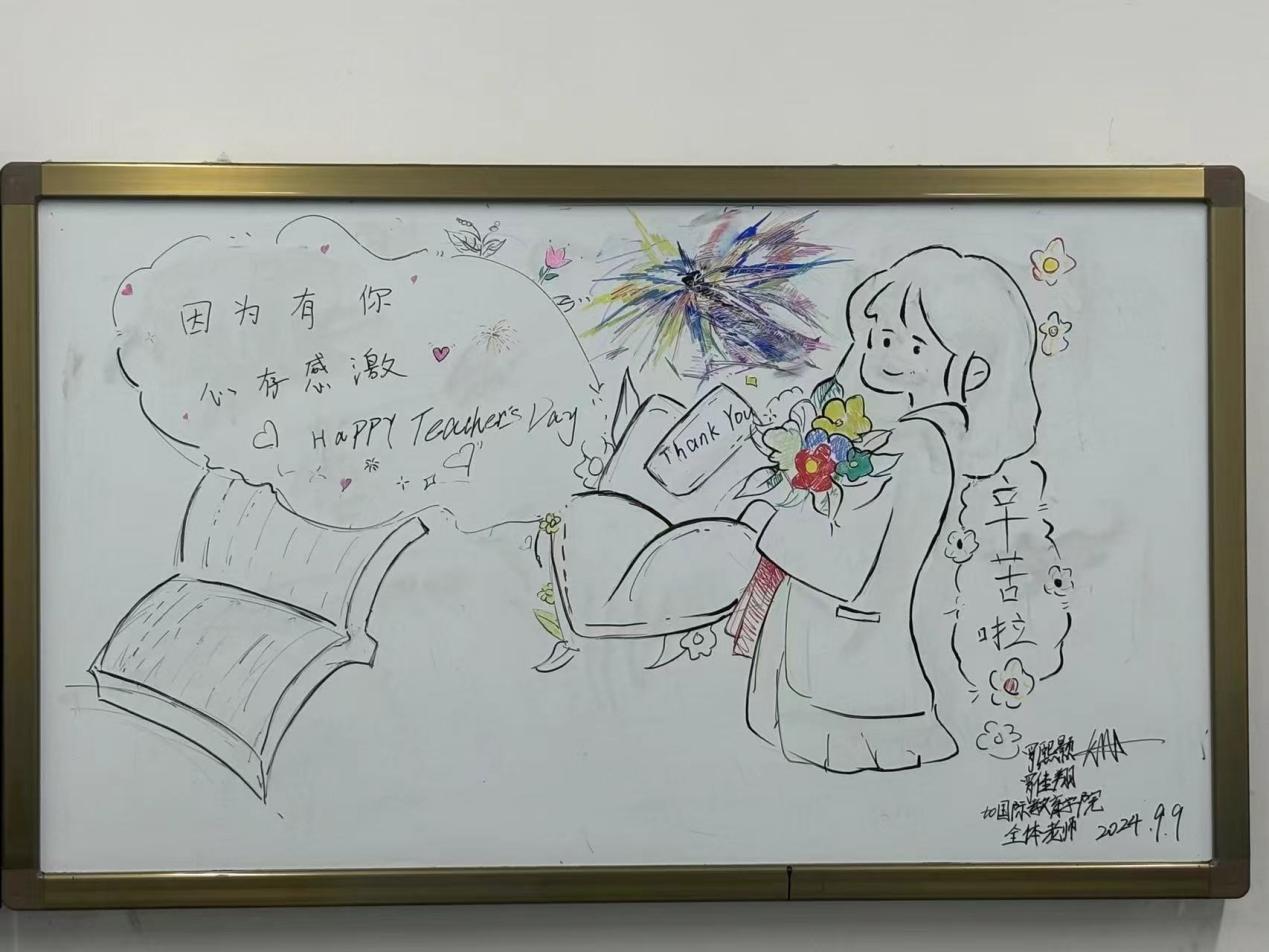 因为有你
心存感激
HaPPY Teacher's Day
Thank You
辛苦啦
to国际教育学院
全体老师 2024.9.9